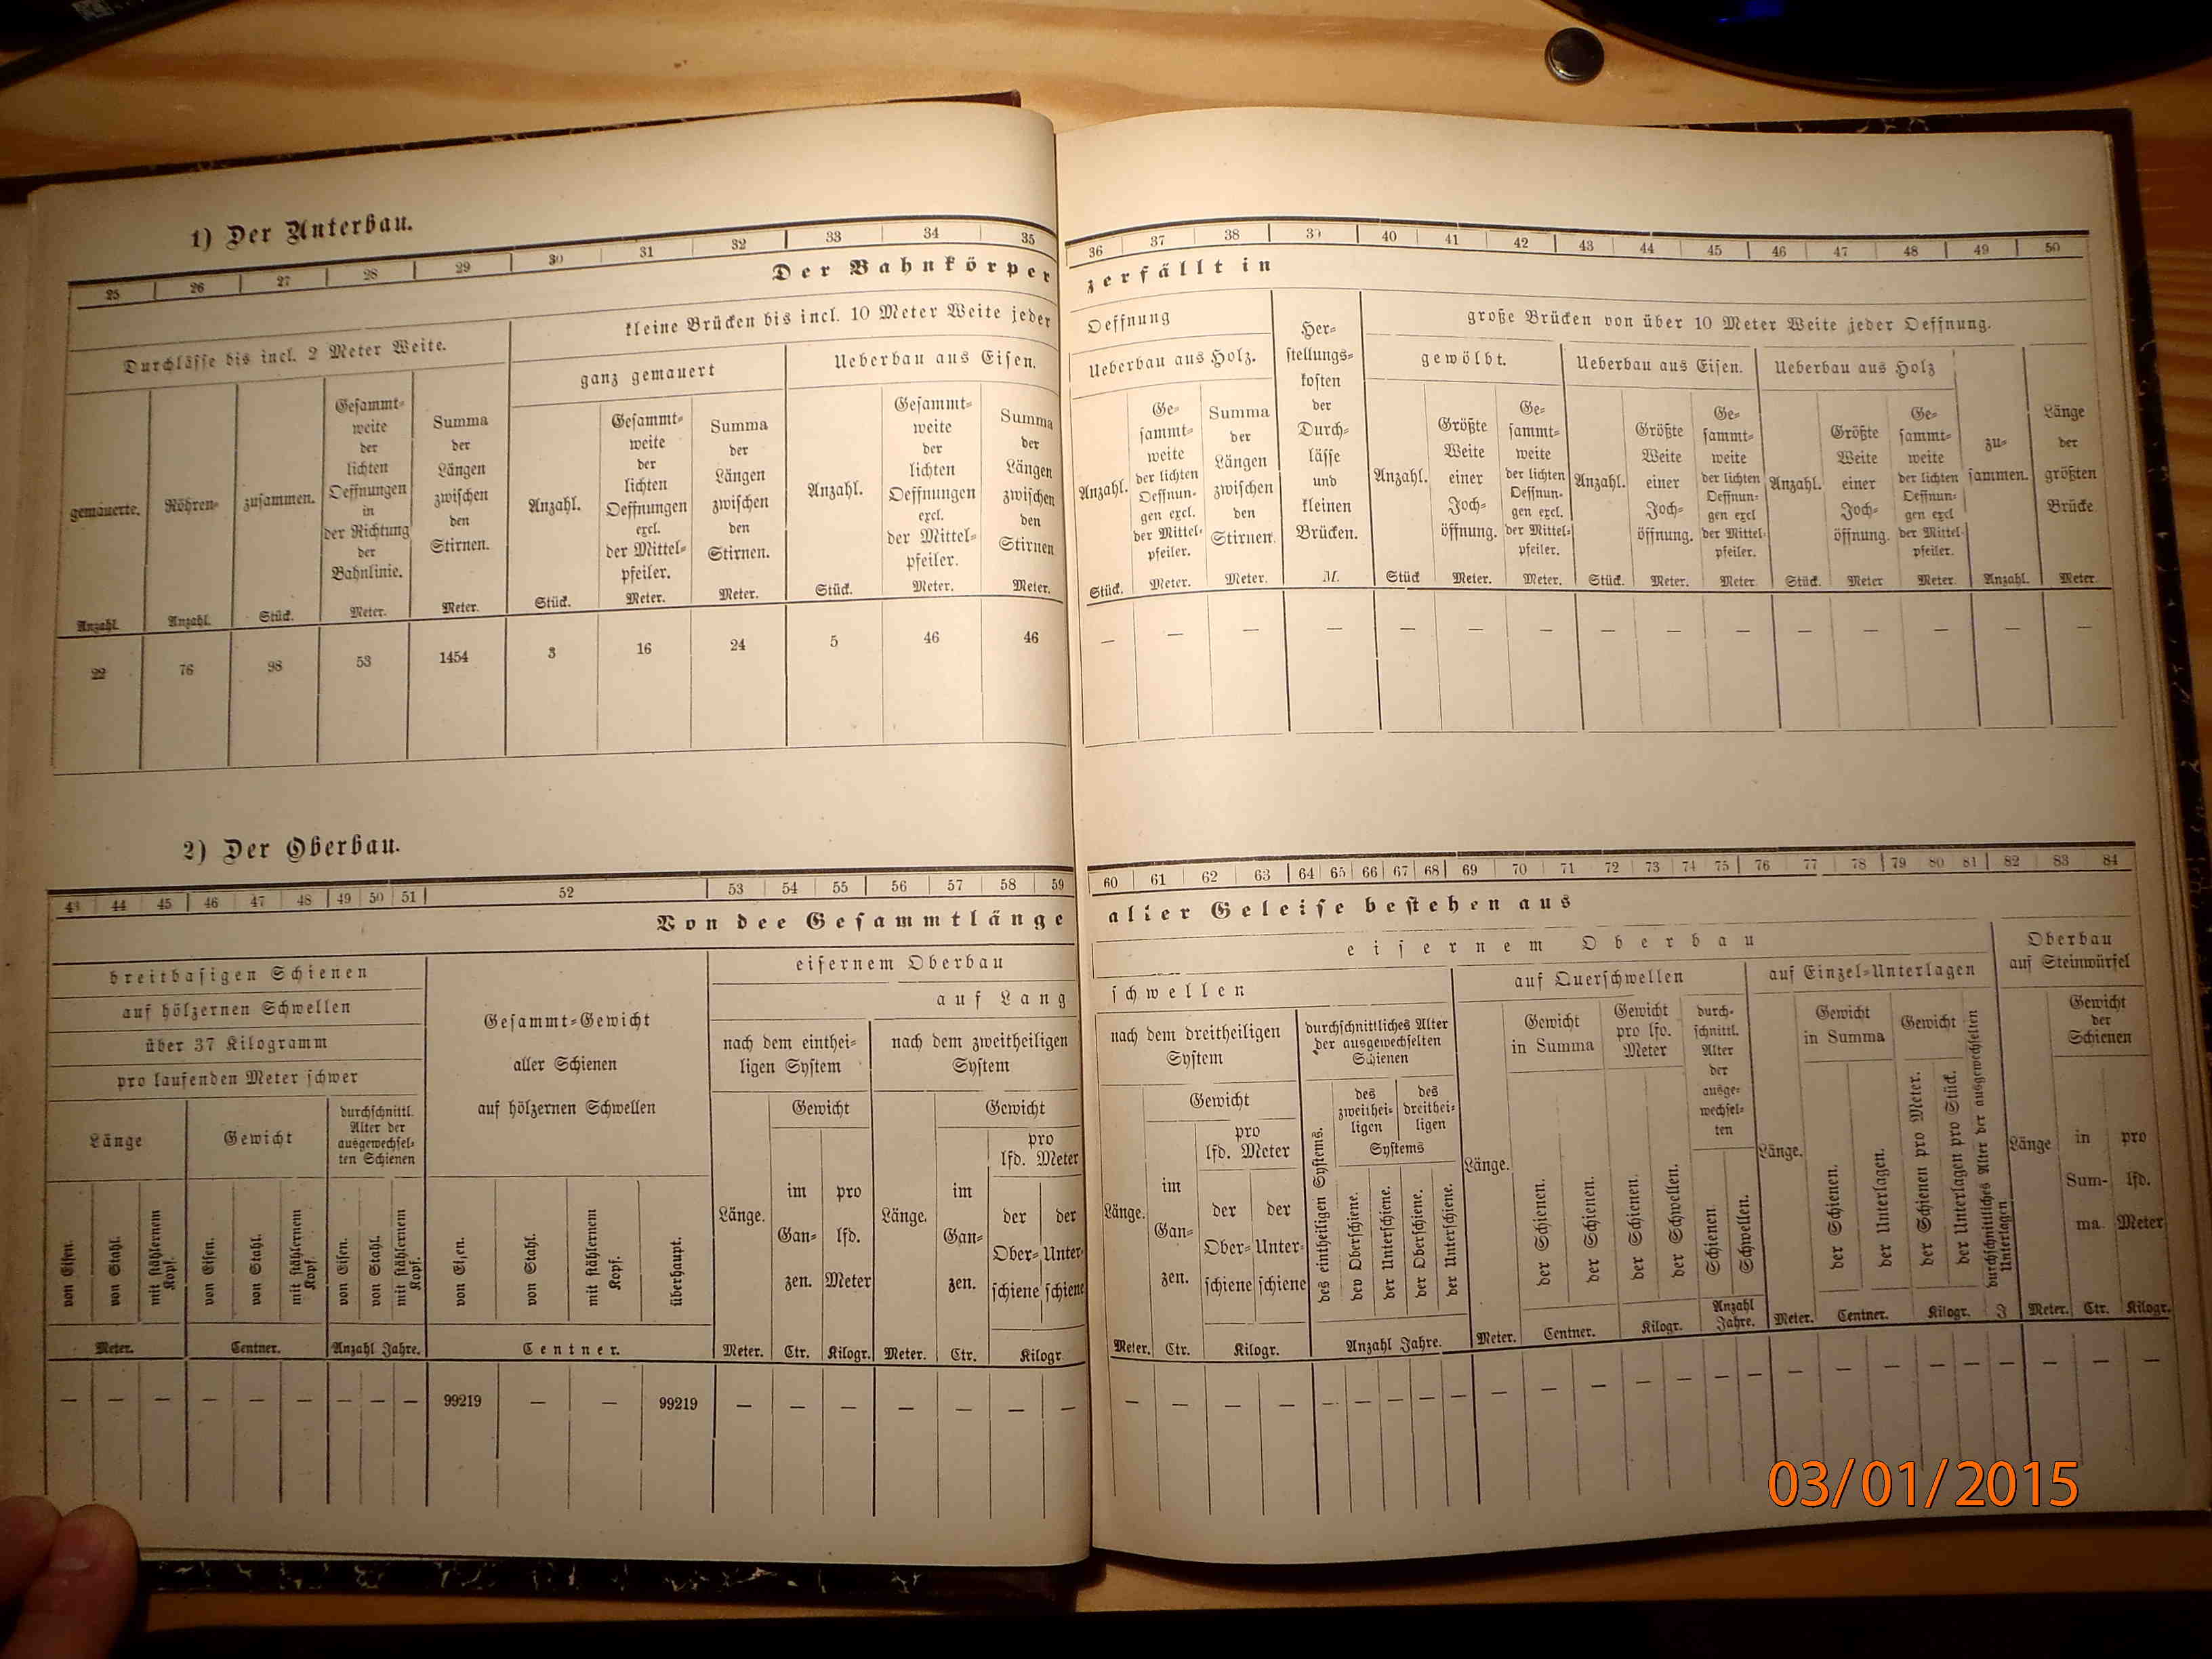 1) Der Unterbau.
25 26 27 28 29 30 31 32 33 34 35
Der Bahnkörper
Durchlässe bis incl. 2 Meter Weite.
kleine Brücken bis incl. 10 Meter Weite jeder
ganz gemauert
Ueberbau aus Eisen.
gemäuerte.
Anzahl.
Röhren-
Anzahl.
zusammen.
Stück.
Gesammt-
weite
der
lichten
Oeffnungen
in
der Richtung
der
Bahnlinie.
Meter.
Summa
der
Längen
zwischen
den
Stirnen.
Meter.
Anzahl.
Stück.
Gesammt-
weite
der
lichten
Oeffnungen
excl.
der Mittel-
pfeiler.
Meter.
Summa
der
Längen
zwischen
den
Stirnen.
Meter.
Anzahl.
Stück.
Gesammt-
weite
der
lichten
Oeffnungen
excl.
der Mittel-
pfeiler.
Meter.
Summa
der
Längen
zwischen
den
Stirnen
Meter.
22 76 98 53 1454 3 16 24 5 46 46
36 37 38 39 40 41 42 43 44 45 46 47 48 49 50
zerfällt in
Oeffnung
Ueberbau aus Holz.
große Brücken von über 10 Meter Weite jeder Oeffnung.
gewölbt.
Ueberbau aus Eisen.
Ueberbau aus Holz
Anzahl.
Stück.
Ge-
sammt-
weite
der lichten
Oeffnun-
gen excl.
der Mittel-
pfeiler.
Meter.
Summa
der
Längen
zwischen
den
Stirnen.
Meter.
Her-
stellungs-
kosten
der
Durch-
lässe
und
kleinen
Brücken.
M.
Anzahl.
Stück
Größte
Weite
einer
Joch-
öffnung.
Meter.
Ge-
sammt-
weite
der lichten
Oeffnun-
gen excl.
der Mittel-
pfeiler.
Meter.
Anzahl.
Stück.
Größte
Weite
einer
Joch-
öffnung.
Meter.
Ge-
sammt-
weite
der lichten
Oeffnun-
gen excl
der Mittel-
pfeiler.
Meter
Anzahl.
Stück.
Größte
Weite
einer
Joch-
öffnung.
Meter
Ge-
sammt-
weite
der lichten
Oeffnun-
gen excl
der Mittel-
pfeiler.
Meter.
zu-
sammen.
Anzahl.
Länge
der
größten
Brücke
Meter.
— — — — — — — — — — — — — — —
2) Der Oberbau.
43 44 45 46 47 48 49 50 51 52 53 54 55 56 57 58 59
Von dee Gesammtlänge
breitbasigen Schienen
auf hölzernen Schwellen
über 37 Kilogramm
pro laufenden Meter schwer
Länge
Gewicht
durchschnittl.
Alter der
ausgewechsel-
ten Schienen
von Eisen.
von Stahl.
mit stählernem
Kopf.
von Eisen.
von Stahl.
mit stählernem
Kopf.
von Eisen.
von Stahl.
mit stählernem
Kopf.
Meter.
Centner.
Anzahl Jahre.
Gesammt-Gewicht
aller Schienen
auf hölzernen Schwellen
von Eisen.
von Stahl.
mit stählernem
Kopf.
überhaupt.
Centner.
eisernem Oberbau
auf Lang
nach dem einthei-
ligen System
Länge.
Gewicht
im
Gan-
zen.
pro
lfd.
Meter
Meter. Ctr. Kilogr.
nach dem zweitheiligen
System
Länge.
Gewicht
im
Gan-
zen.
pro
lfd. Meter
der
Ober-
schiene
der
Unter-
schiene
Meter. Ctr. Kilogr
— — — — — — — — — 99219 — — 99219 — — — — — — —
60 61 62 63 64 65 66 67 68 69 70 71 72 73 74 75 76 77 78 79 80 81 82 83 84
aller Geleise bestehen aus
eisernem Oberbau
schwellen
nach dem dreitheiligen
System
Länge.
Gewicht
im
Gan-
zen.
pro
lfd. Meter
der
Ober-
schiene
der
Unter-
schiene
Meter. Ctr. Kilogr.
durchschnittliches Alter
der ausgewechselten
Schienen
des eintheiligen Systems.
des
zweithei-
ligen
des
dreithei-
ligen
Systems
der Oberschiene.
der Unterschiene.
der Oberschiene.
der Unterschiene.
Anzahl Jahre.
auf Querschwellen
Länge.
Gewicht
in Summa
der Schienen.
der Schienen.
Gewicht
pro lfd.
Meter
der Schienen.
der Schwellen.
durch-
schnittl.
Alter
der
ausge-
wechsel-
ten
Schienen.
Schwellen.
Meter. Centner. Kilogr. Anzahl
Jahre.
auf Einzel-Unterlagen
Länge.
Gewicht
in Summa
der Schienen.
der Unterlagen.
Gewicht
der Schienen pro Meter.
der Unterlagen pro Stück.
durchschnittliches Alter der ausgewechselten
Unterlagen
Meter. Centner. Kilogr. J
Oberbau
auf Steinwürfel
Länge
Gewicht
der
Schienen
in
Sum-
ma.
pro
lfd.
Meter
Meter. Ctr. Kilogr.
— — — — — — — — — — — — — — — — — — — — — — — — —
03/01/2015